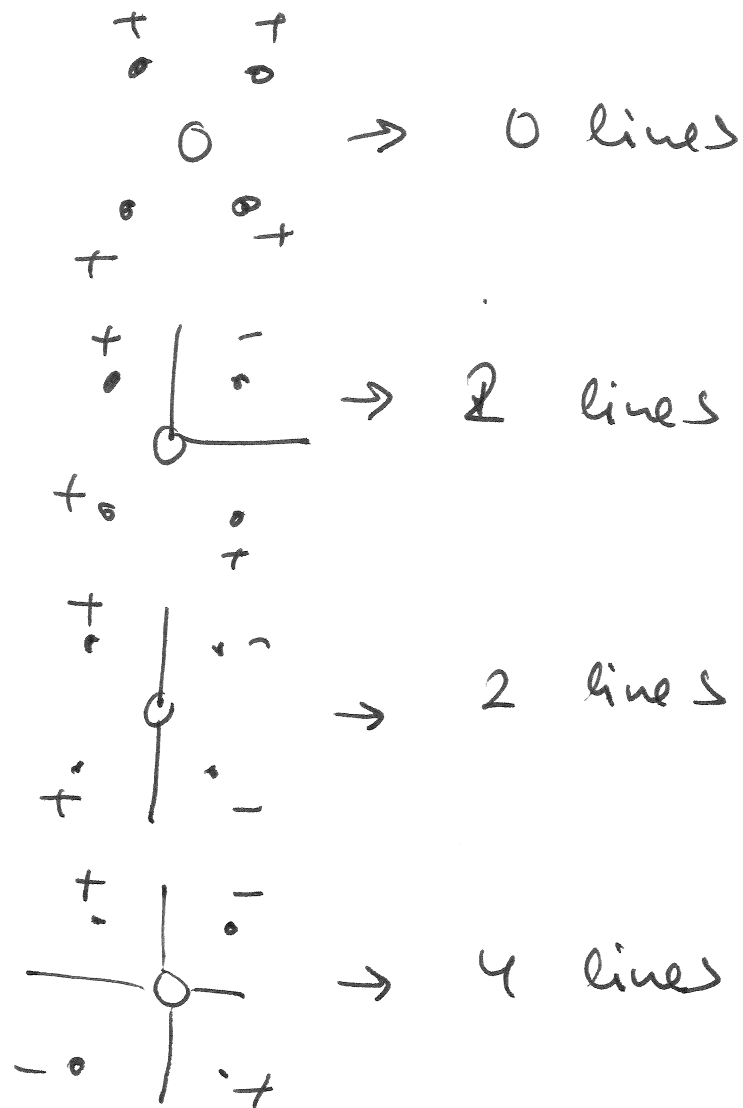 + +
→ 0 lines
+ +
+ -
→ 2 lines
+ +
+ -
→ 2 lines
+ -
+ -
→ 4 lines
- +